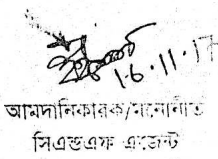 16.11.17
আমদানিকারক/মনোনীত
সিএন্ডএফ এজেন্ট